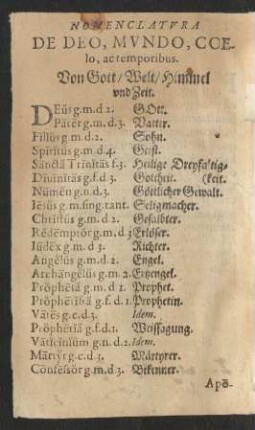 NOMENCLATVRA
DE DEO, MVNDO, COE-
lo, ac temporibus.
Von Gott/Welt/Himmel
vnd Zeit.
DEŭs g.m.d 2. GOtt.
Pătĕr g.m.d.3. Vatter.
Fīlĭŭs g.m.d.2. Sohn.
Spīrĭtŭs g.m.d.4. Geist.
Sānctă Trīnĭtās f.3. Heilige Dreyfaltig-
Dīvīnĭtās g.f.d.3. Gottheit. (keit.
Nūmĕn g.n.d.3. Göttlicher Gewalt.
Iēsŭs g.m.sing.tant. Seligmacher.
Chrīstŭs g.m.d.2. Gesalbter.
Rĕdēmptŏr g.m.d.3 Erlöser.
Iūdĕx g.m.d.3. Richter.
Angĕlŭs g.m.d.2. Engel.
Archāngĕlŭs g.m.2. Ertzengel.
Prŏphētă g.m.d 1. Prophet.
Prŏphētīssă g.f.d.1. Prophetin.
Vātēs g.c.d.3. Idem.
Prŏphētīă g.f.d.1. Weissagung.
Vātĭcĭnĭŭm g.n.d.2. Idem.
Mārtўr g.c.d.3. Märtyrer.
Cōnfēssŏr g.m.d.3. Bekenner.
Apō-